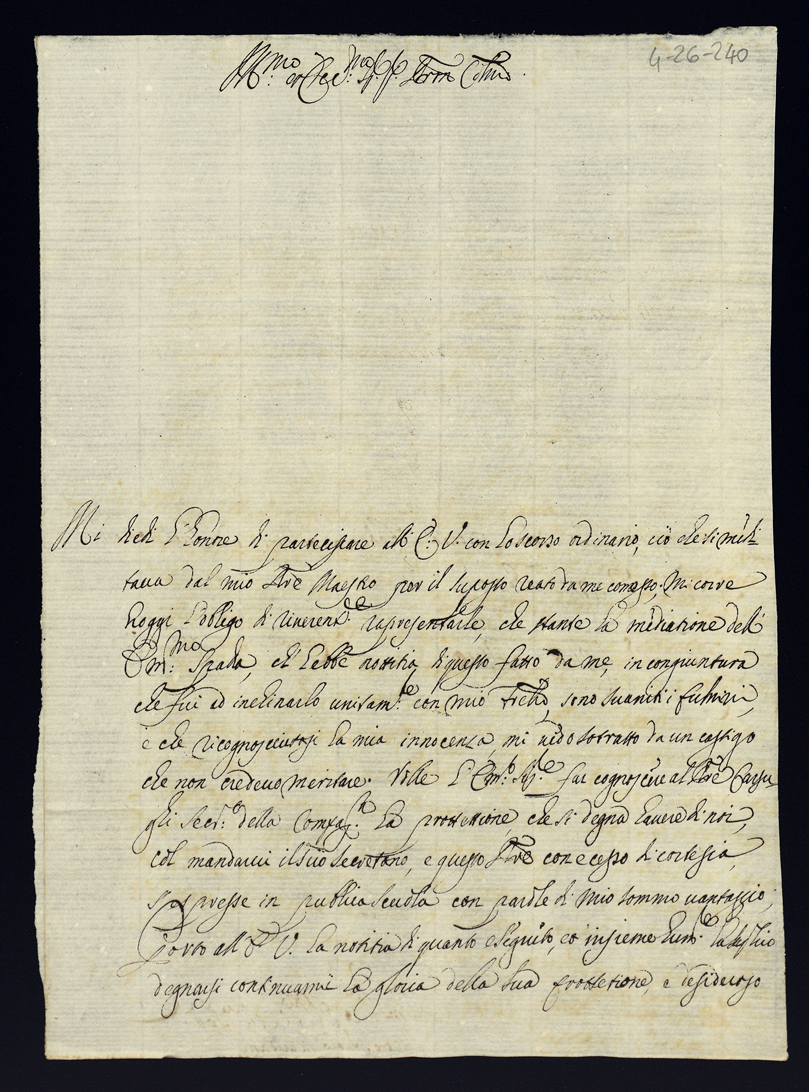 4-26-240
Ill.mo et Ecc.mo Sig. Sig. P.ron Col.mo
Mi diedi l'honore di partecipare all'E: V. con lo scorso ordinario, ciò che si medi-
taua dal mio P're Maestro per il suposto reato da me comesso. Mi corre
hoggi l'obligo di riuerent.e rapresentarle, che stante la mediatione dell'
Em:mo Spada, ch'hebbe notitia di questo fatto da me, in congiuntura
che fui ad inchinarlo unitam.te con mio Fr'ello, sono suaniti i fulmini,
e che ricognosciutasi la mia innocenza, mi uedo sotratto da un castigo
che non credeuo meritare. Volle l'Em.o Sp. far cognoscere al P're
gli Secr.o della Compag.a la protettione, che si degna hauere di noi,
col mandarui il suo secretario, e questo P're con ecesso di cortesia,
s'espresse in publica scuola con parole di mio sommo uantaggio;
Porto all'E. V. la notitia di quanto è seguito, et insieme hum.e la suplico
degnarsi continuarmi la gloria della sua protetione, e desideroso